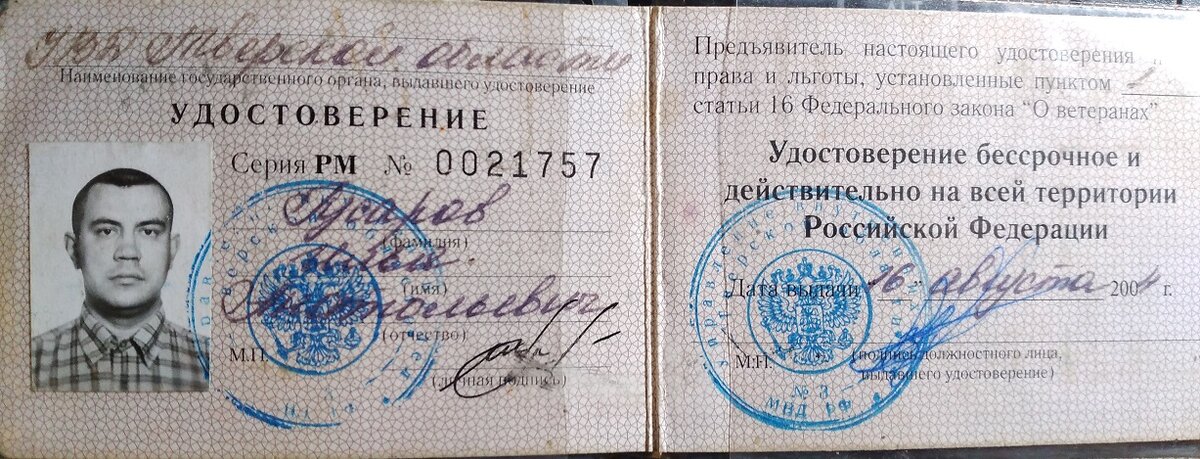 УВД Тверской области
Наименование государственного органа, выдавшего удостоверение
УДОСТОВЕРЕНИЕ
Серия РМ № 0021757
(фамилия)
(имя)
Анатольевич
(отчество)
М.П.
(личная подпись)
Предъявитель настоящего удостоверения
права и льготы, установленные пунктом 1
статьи 16 Федерального закона "О ветеранах"
Удостоверение бессрочное и
действительно на всей территории
Российской Федерации
Дата выдачи "16" августа 2004 г.
М.П.
(подпись должностного лица,
выдавшего удостоверение)
№ 3
МВД РФ